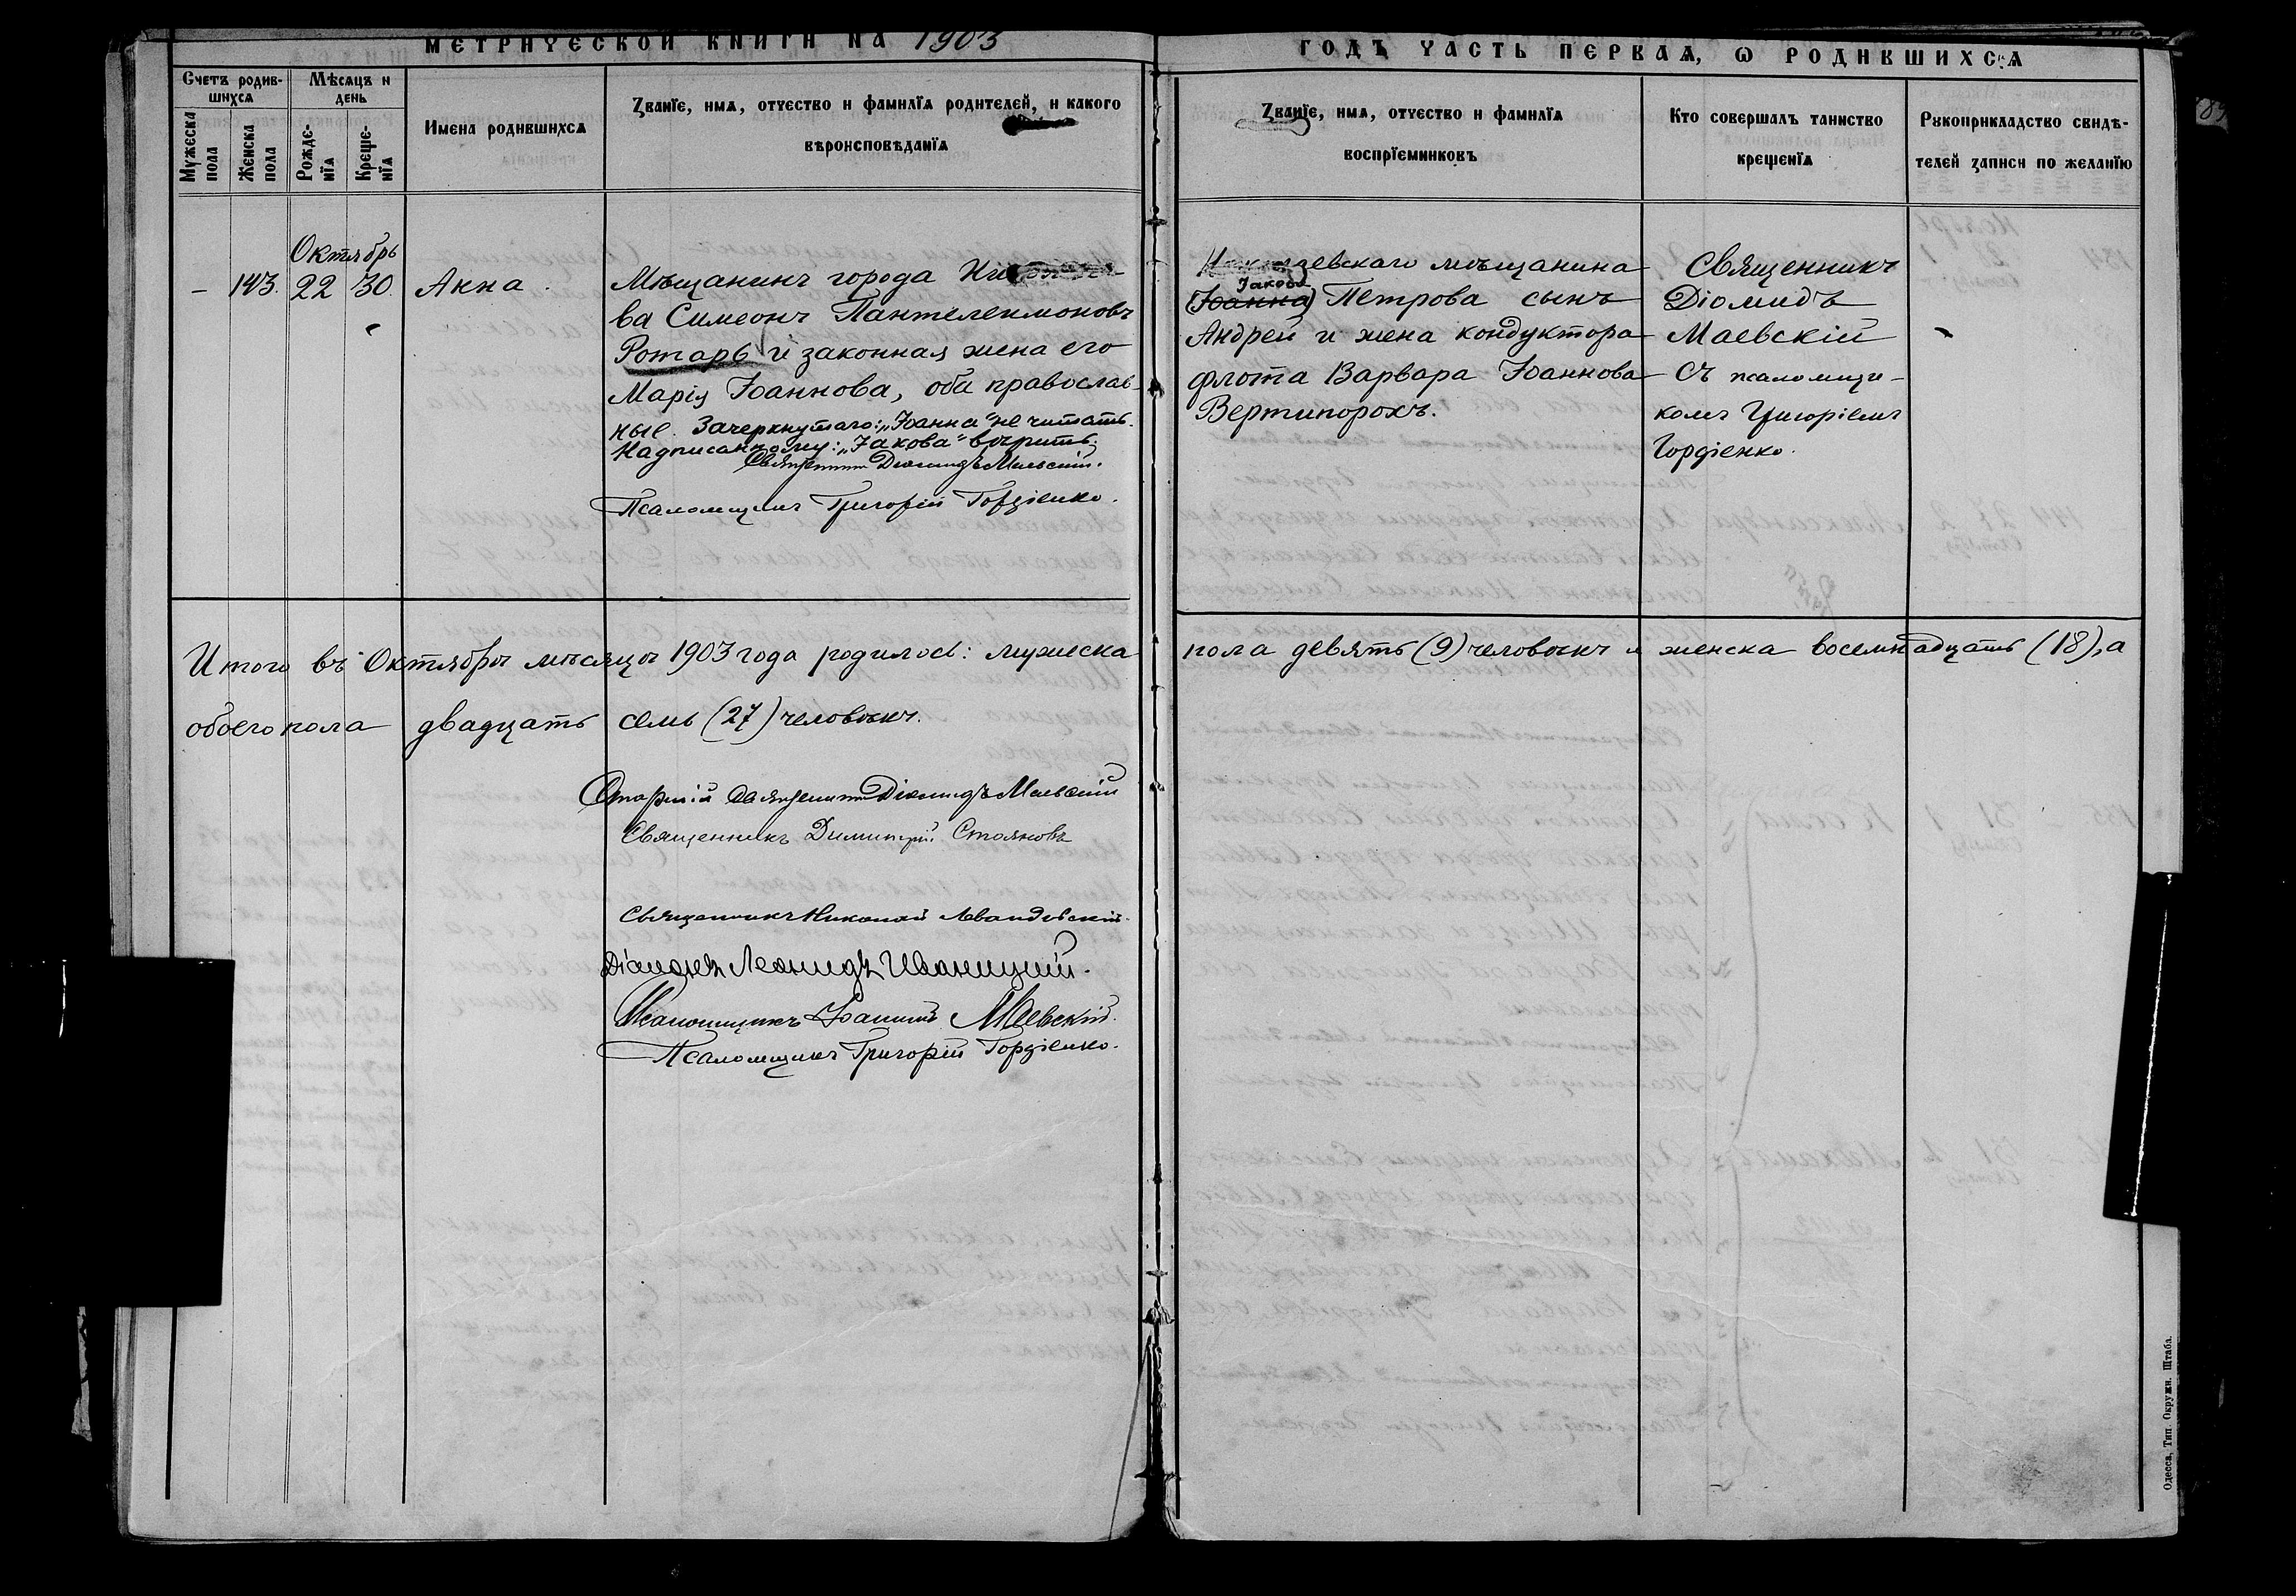 МЕТРИЧЕСКОЙ КНИГИ НА 1903
ГОДЪ ЧАСТЬ ПЕРВАЯ, Ѡ РОДИВШИХСЯ
Счетъ родив-
шихся
Мужеска пола
Женска пола
Мѣсяцъ и
день
Рожде-
нїя
Креще-
нїя
Имена родившихся
Званїе, имя, отчество и фамилїя родителей, и какого
вѣроисповѣданїя
Званїе, имя, отчество и фамилїя
воспрїемниковъ
Кто совершалъ таинство
крещенїя
Рукоприкладство свидѣ-
телей записи по желанїю
Октябрь
– 143. 22 30. Анна.
Мѣщанинъ города
ва Симеонъ Пантелеимоновъ
Ротарь и законная жена его
Марія Іоаннова, оба православ-
ные. Зачеркнутаго: „Іоанна" не читать.
Надписанному: „Іакова" вѣрить.
Священникъ Діомидъ Маевскій.
Псаломщикъ Григорій Гордіенко.
Николаевскаго мѣщанина
Іакова
(Іоанна) Петрова сынъ
Андрей и жена кондуктора
флота Варвара Іоаннова
Вертипорохъ.
Священникъ
Діомидъ
Маевскій
съ псаломщи-
комъ Григоріемъ
Гордіенко.
Итого въ Октябрѣ мѣсяцѣ 1903 года родилось: мужеска пола девять (9) человѣкъ и женска восемнадцать (18), а
обоего пола двадцать семь (27) человѣкъ.
Старшій Священникъ Діомидъ Маевскій
Священникъ Димитрій Стояновъ
Священникъ Николай Левандовскій.
Діаконъ Леонидъ Иваницкій.
Псаломщикъ Іоанній Маевскій.
Псаломщикъ Григорій Гордіенко.
Одесса, Тип. Окружн. Штаба.